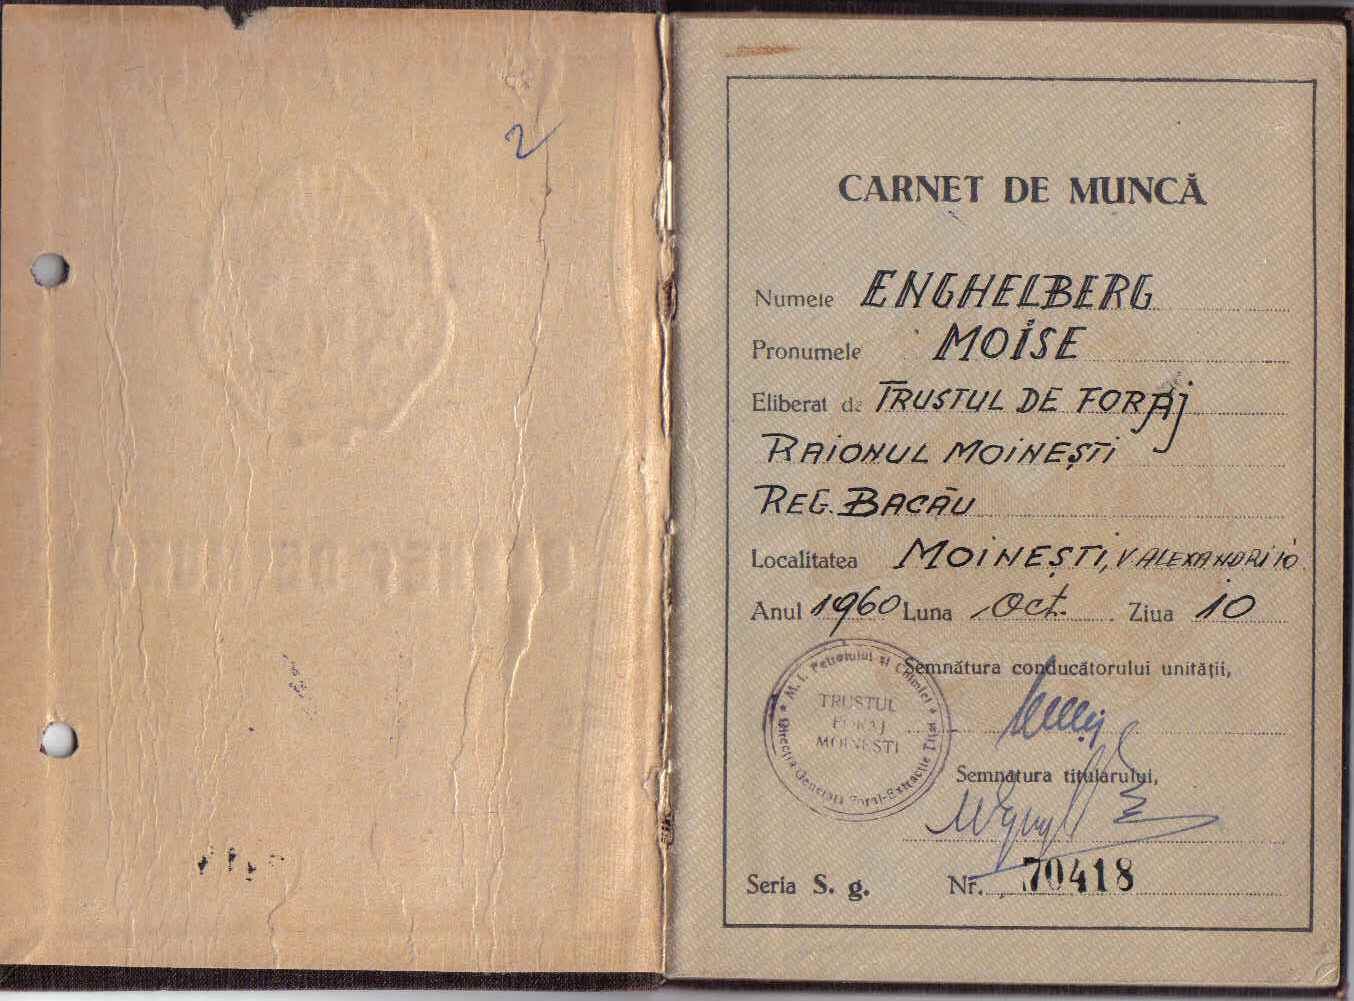 2
CARNET DE MUNCĂ
Numele ENGHELBERG
Pronumele MOISE
Eliberat de TRUSTUL DE FORAJ
RAIONUL MOINEȘTI
REG. BACĂU
Localitatea MOINEȘTI, V ALEXANDRI 10
Anul 1960 Luna Oct. Ziua 10
Semnătura conducătorului unității,
M. I. Petrolului și Chimiei
Direcția Generală Foraj-Extracție Țiței
TRUSTUL
FORAJ
MOINEȘTI
Semnătura titularului,
Seria S. g. Nr. 70418